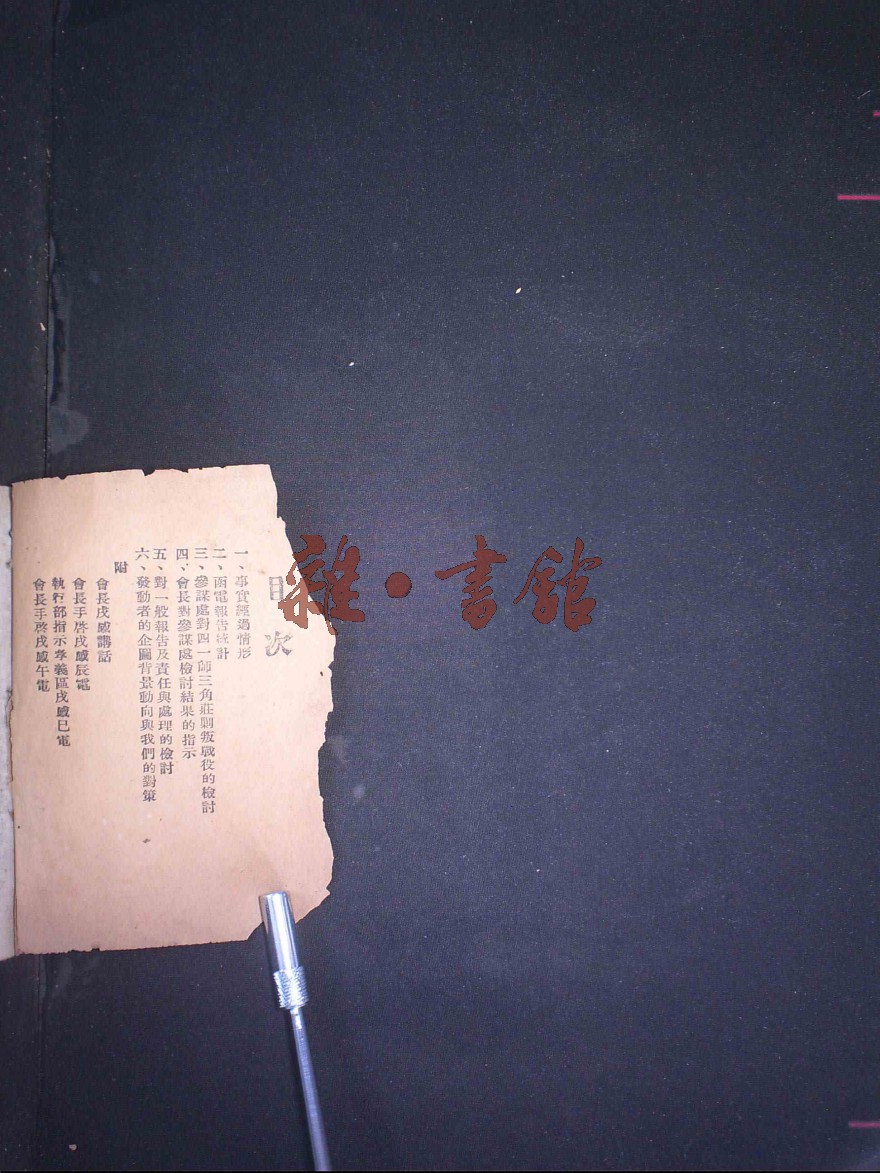 目次
一、事實經過情形
二、函電報告統計
三、參謀處對四一師三角莊剿叛戰役的檢討
四、會長對參謀處檢討結果的指示
五、對一般報告及責任與處理的檢討
六、發動者的企圖背景動向與我們的對策
附
會長戌感講話
會長手啓戌感辰電
執行部指示孝義區戌感巳電
會長手啓戌感午電
雜·書館